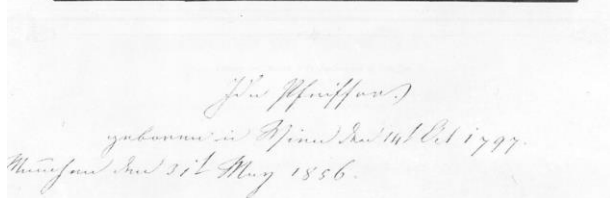 Ida Pfeiffer.
geboren in Wien den 14t Oct 1797.
München den 31t May 1856.